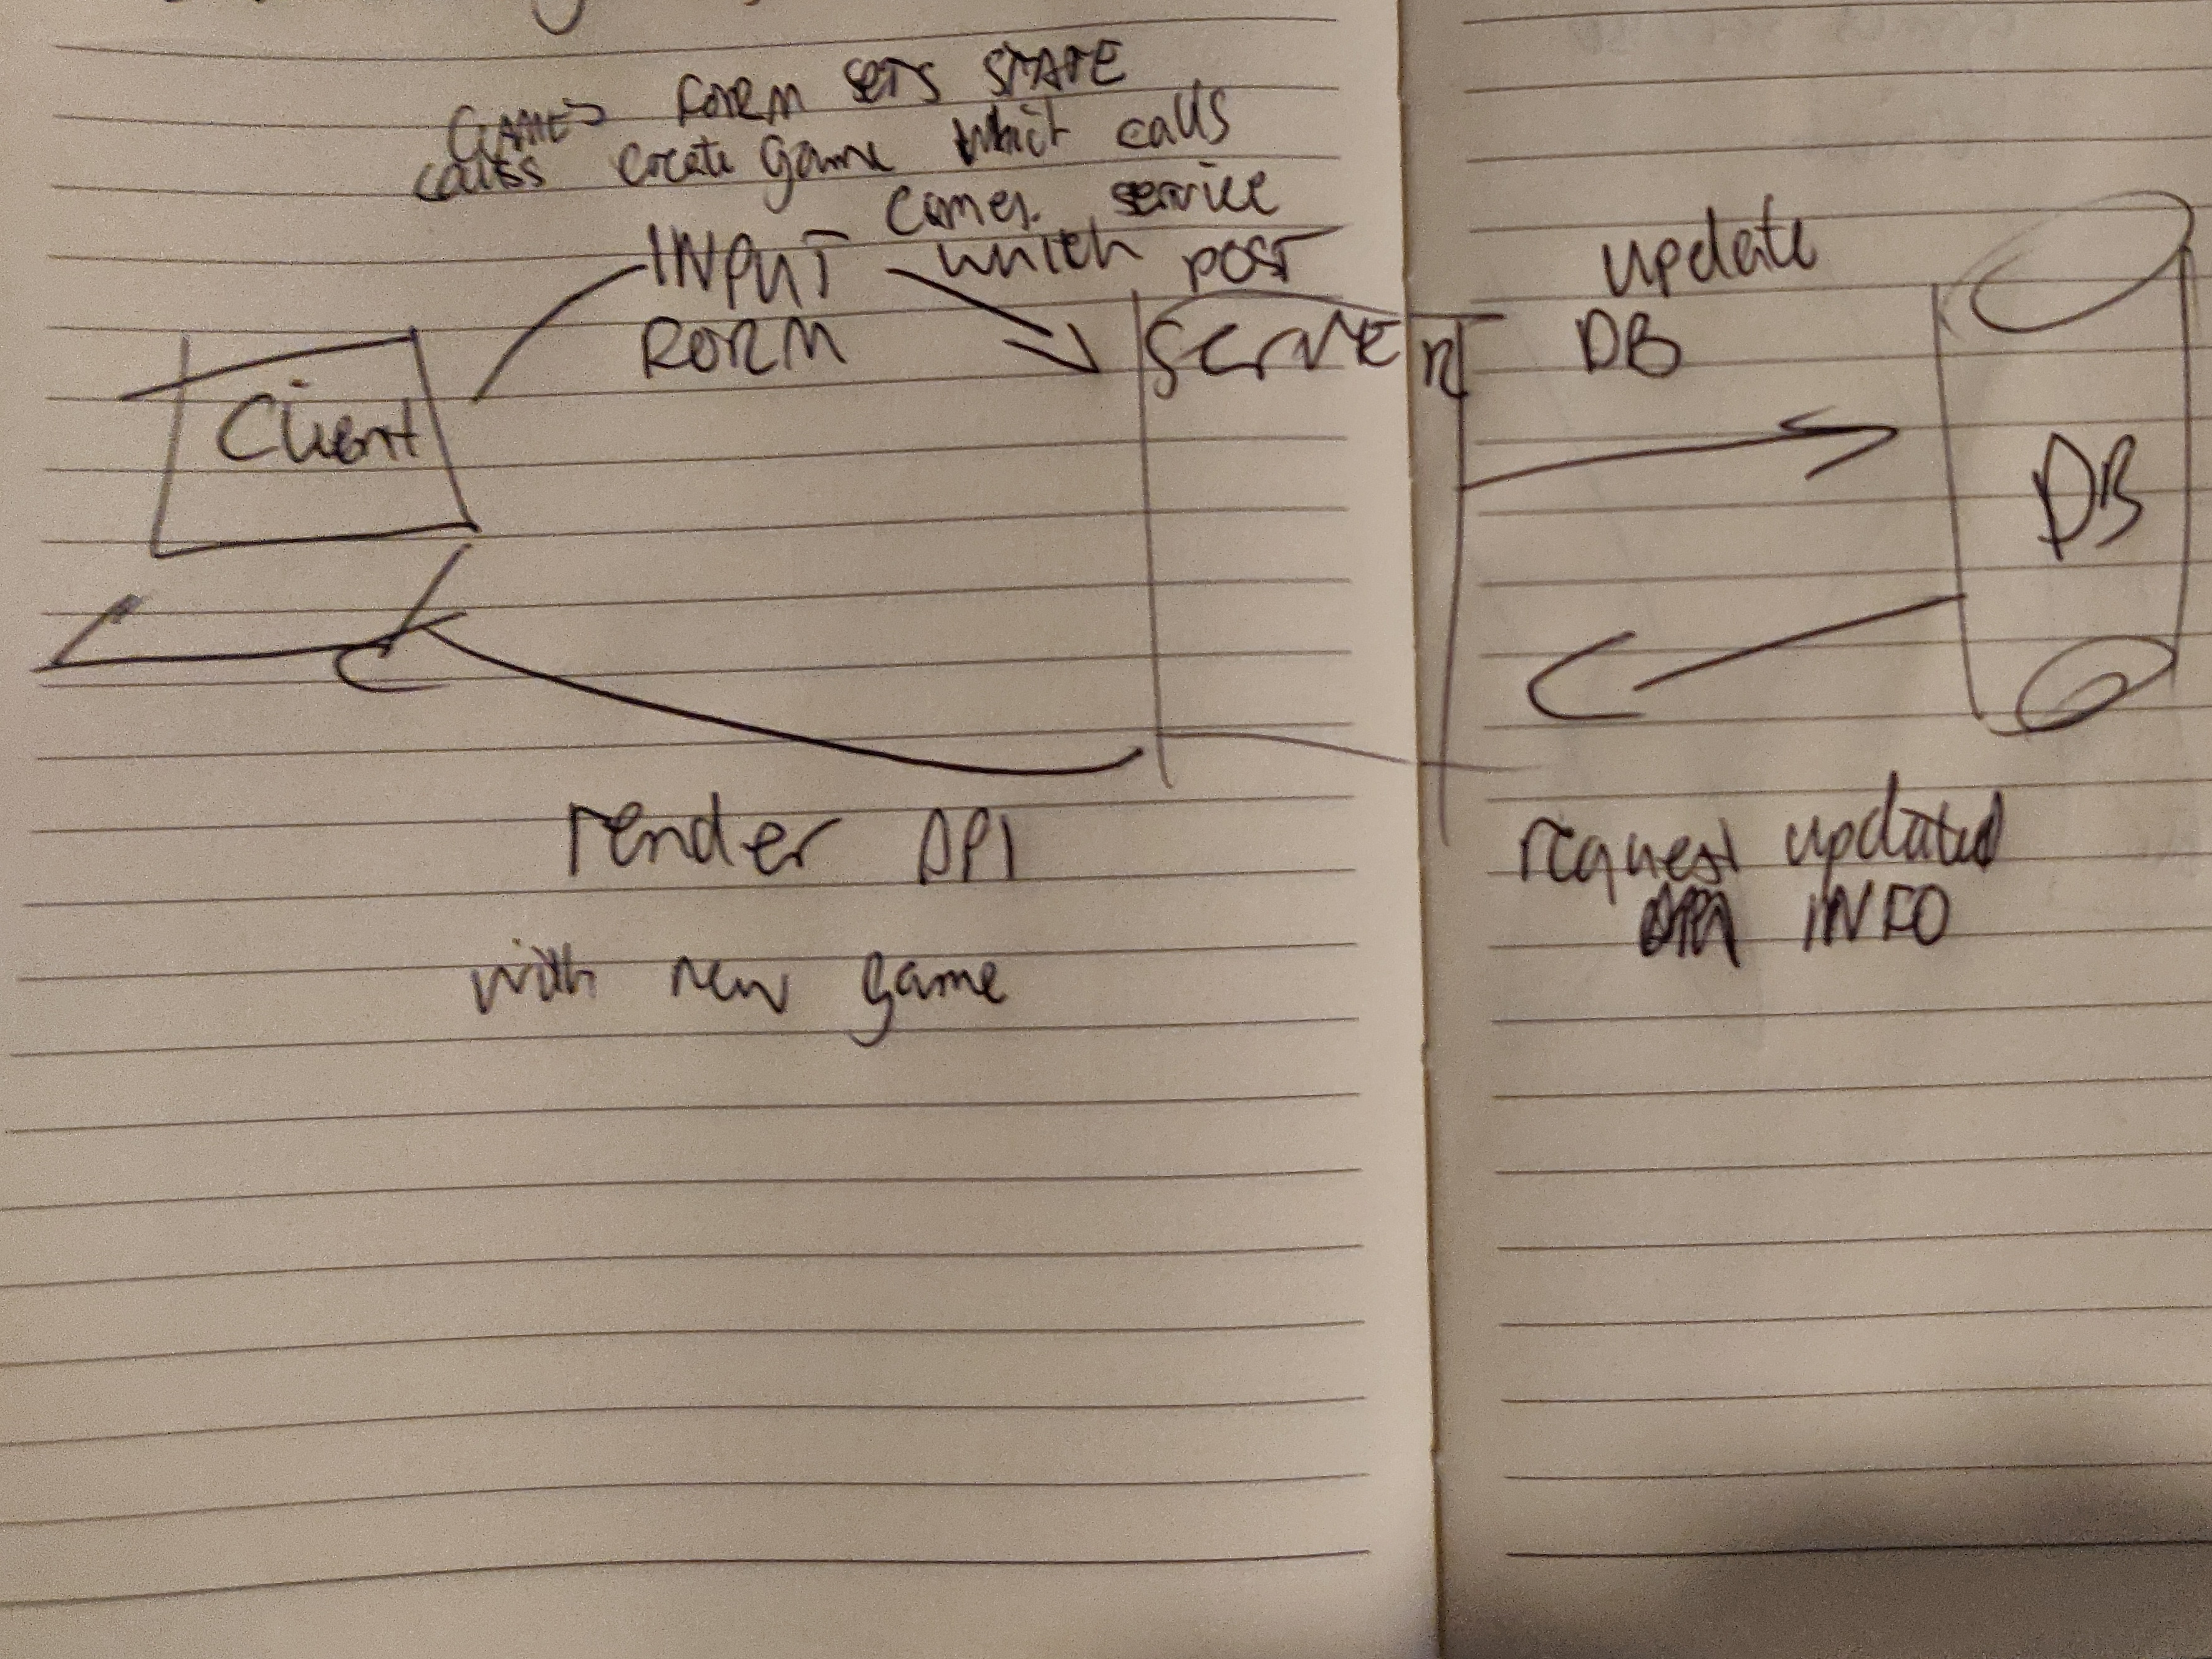 GAMES FORM SETS STATE
calls create game which calls
Games. service
INPUT which post
FORM
SERVER
update
DB
Client
DB
render API
with new game
request updated
INFO